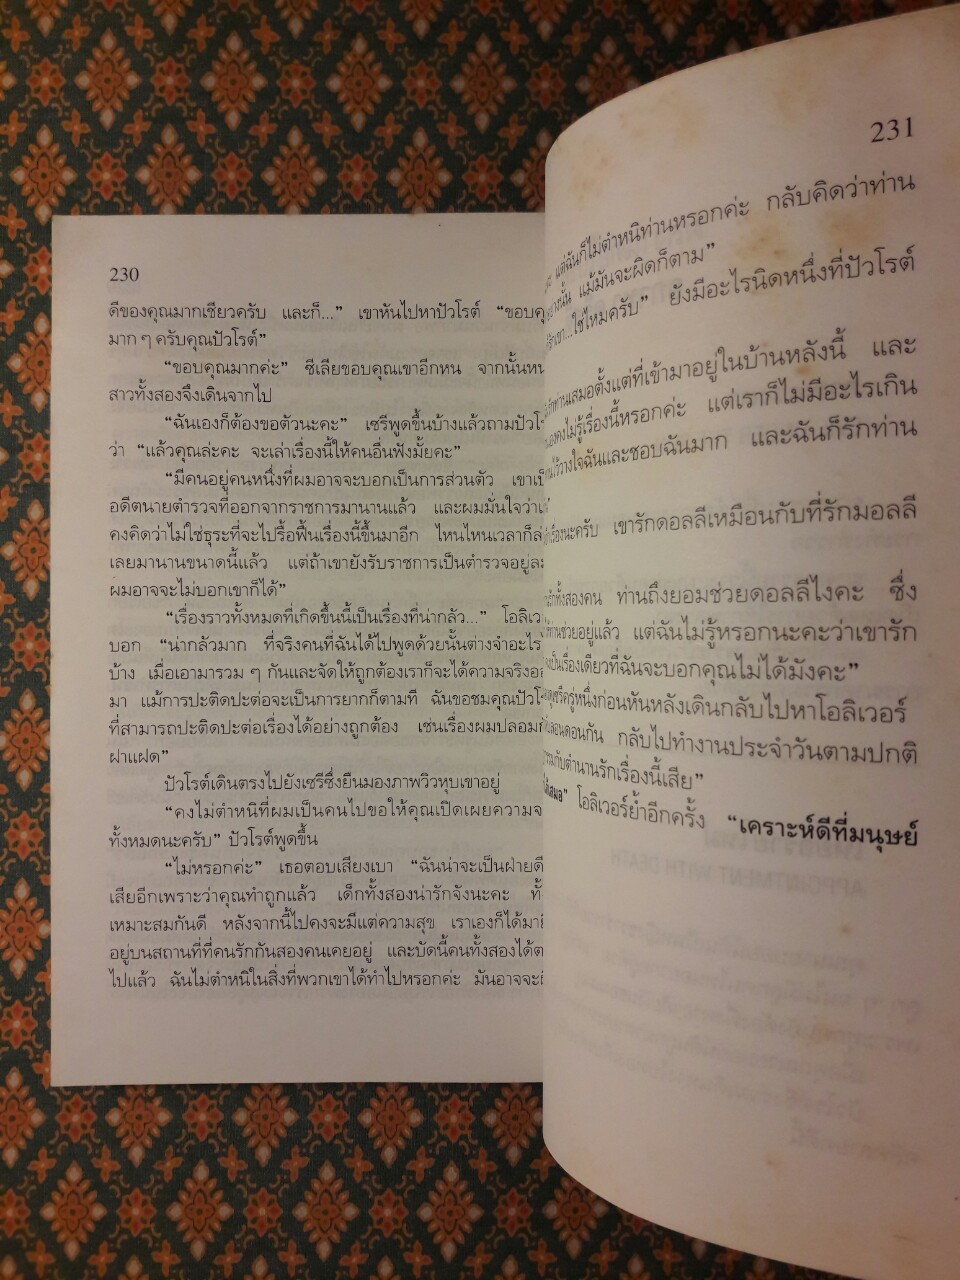 230
ดีของคุณมากเชียวครับ และก็...” เขาหันไปหาปัวโรต์ “ขอบคุ
มาก ๆ ครับคุณปัวโรต์”
“ขอบคุณมากค่ะ” ซีเลียขอบคุณเขาอีกหน จากนั้นหน
สาวทั้งสองจึงเดินจากไป
“ฉันเองก็ต้องขอตัวนะคะ” เซรีพูดขึ้นบ้างแล้วถามปัวโร
ว่า “แล้วคุณล่ะคะ จะเล่าเรื่องนี้ให้คนอื่นฟังมั้ยคะ”
“มีคนอยู่คนหนึ่งที่ผมอาจจะบอกเป็นการส่วนตัว เขาเป็
อดีตนายตำรวจที่ออกจากราชการมานานแล้ว และผมมั่นใจว่าเ
คงคิดว่าไม่ใช่ธุระที่จะไปรื้อฟื้นเรื่องนี้ขึ้นมาอีก ไหนไหนเวลาก็ล่
เลยมานานขนาดนี้แล้ว แต่ถ้าเขายังรับราชการเป็นตำรวจอยู่ละ
ผมอาจจะไม่บอกเขาก็ได้”
“เรื่องราวทั้งหมดที่เกิดขึ้นนี้เป็นเรื่องที่น่ากลัว...” โอลิเว
บอก “น่ากลัวมาก ที่จริงคนที่ฉันได้ไปพูดด้วยนั้นต่างจำอะไร
บ้าง เมื่อเอามารวม ๆ กันและจัดให้ถูกต้องเราก็จะได้ความจริงออ
มา แม้การปะติดปะต่อจะเป็นการยากก็ตามที ฉันขอชมคุณปัวโ
ที่สามารถปะติดปะต่อเรื่องได้อย่างถูกต้อง เช่นเรื่องผมปลอมกั
ฝาแฝด”
ปัวโรต์เดินตรงไปยังเซรีซึ่งยืนมองภาพวิวหุบเขาอยู่
“คงไม่ตำหนิที่ผมเป็นคนไปขอให้คุณเปิดเผยความจ
ทั้งหมดนะครับ” ปัวโรต์พูดขึ้น
“ไม่หรอกค่ะ” เธอตอบเสียงเบา “ฉันน่าจะเป็นฝ่ายดี
เสียอีกเพราะว่าคุณทำถูกแล้ว เด็กทั้งสองน่ารักจังนะคะ ทั้
เหมาะสมกันดี หลังจากนี้ไปคงจะมีแต่ความสุข เราเองก็ได้มายื
อยู่บนสถานที่ที่คนรักกันสองคนเคยอยู่ และบัดนี้คนทั้งสองได้ต
ไปแล้ว ฉันไม่ตำหนิในสิ่งที่พวกเขาได้ทำไปหรอกค่ะ มันอาจจะผิ
231
แต่ฉันก็ไม่ตำหนิท่านหรอกค่ะ กลับคิดว่าท่าน
แม้มันจะผิดก็ตาม”
ใช่ไหมครับ” ยังมีอะไรนิดหนึ่งที่ปัวโรต์
ท่านเสมอตั้งแต่ที่เข้ามาอยู่ในบ้านหลังนี้ และ
คงไม่รู้เรื่องนี้หรอกค่ะ แต่เราก็ไม่มีอะไรเกิน
ไว้วางใจฉันและชอบฉันมาก และฉันก็รักท่าน
เรื่องนะครับ เขารักดอลลีเหมือนกับที่รักมอลลี
รักทั้งสองคน ท่านถึงยอมช่วยดอลลีไงคะ ซึ่ง
ท่านช่วยอยู่แล้ว แต่ฉันไม่รู้หรอกนะคะว่าเขารัก
เป็นเรื่องเดียวที่ฉันจะบอกคุณไม่ได้มังคะ”
เซรีครู่หนึ่งก่อนหันหลังเดินกลับไปหาโอลิเวอร์
ลอนดอนกัน กลับไปทำงานประจำวันตามปกติ
กับตำนานรักเรื่องนี้เสีย”
ได้เสมอ” โอลิเวอร์ย้ำอีกครั้ง “เคราะห์ดีที่มนุษย์